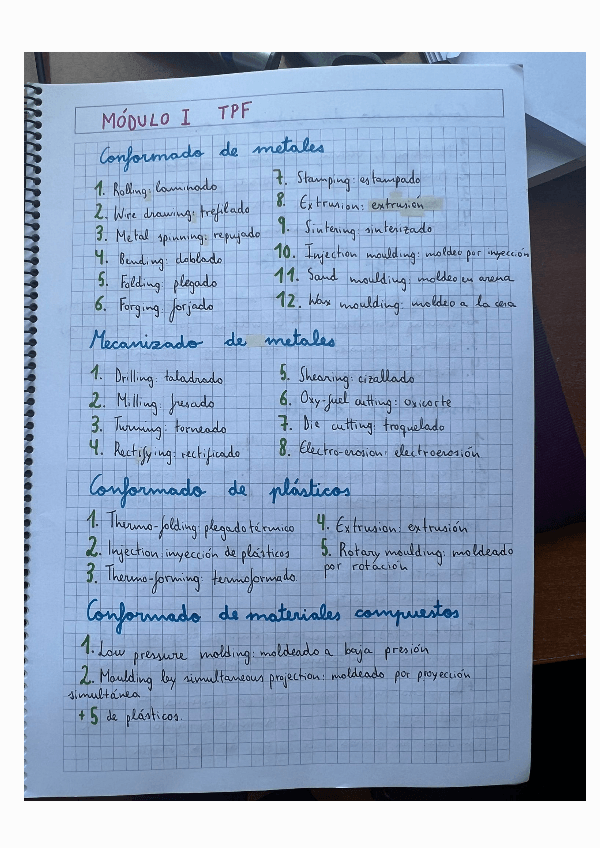 MÓDULO I TPF
Conformado de metales
1. Rolling: laminado
2. Wire drawing: trefilado
3. Metal spinning: repujado
4. Bending: doblado
5. Folding: plegado
6. Forging: forjado
7. Stamping: estampado
8. Extrusion: extrusión
9. Sintering sinterizado
10. Injection moulding: moldeo por inyección
11. Sand moulding: moldeo en arena
12. Wax moulding: moldeo a la cera
Mecanizado de metales
1. Drilling: taladrado
2. Milling: fresado
3. Turning: torneado
4. Rectifying: rectificado
5. Shearing: cizallado
6. Oxy-fuel cutting: oxicorte
7. Die cutting: troquelado
8. Electro-erosion: electroerosión
Conformado de plásticos
1. Thermo-folding plegado térmico
2. Injection: inyección de plásticos
3. Thermo-forming: termoformado.
4. Extrusion: extrusión
5. Rotary moulding: moldeado
por rotación
Conformado de materiales compuestos
1. Low pressure molding: moldeado a baja presión
2. Moulding by simultaneous projection: moldeado por proyección
simultánea
+5 de plásticos.